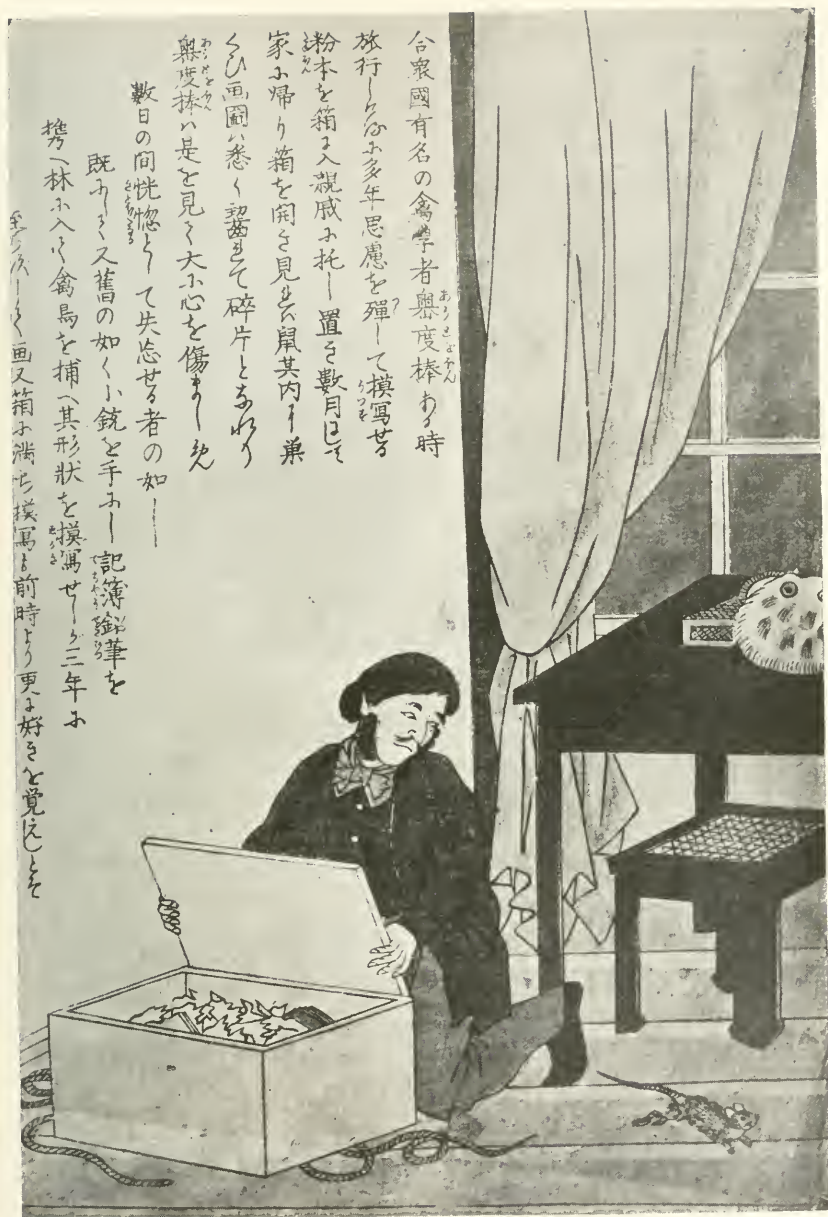 合衆國有名の禽學者奥度棒ある時
旅行しけるに多年思慮を殫して摸写せる
粉本を箱に入親戚に托し置き數月にて
家に帰り箱を開き見れば鼠其内に巣
くひ画圖は悉く齧れて碎片となれり
奥度棒は是を見て大に心を傷ましめ
數日の間恍惚として失念せる者の如し
既にして又舊の如く小銃を手にし記簿鉛筆を
携へ林に入て禽鳥を捕へ其形状を摸寫せしが三年に
して画又箱に満ち摸寫も前時より更に好きを覚えしとぞ